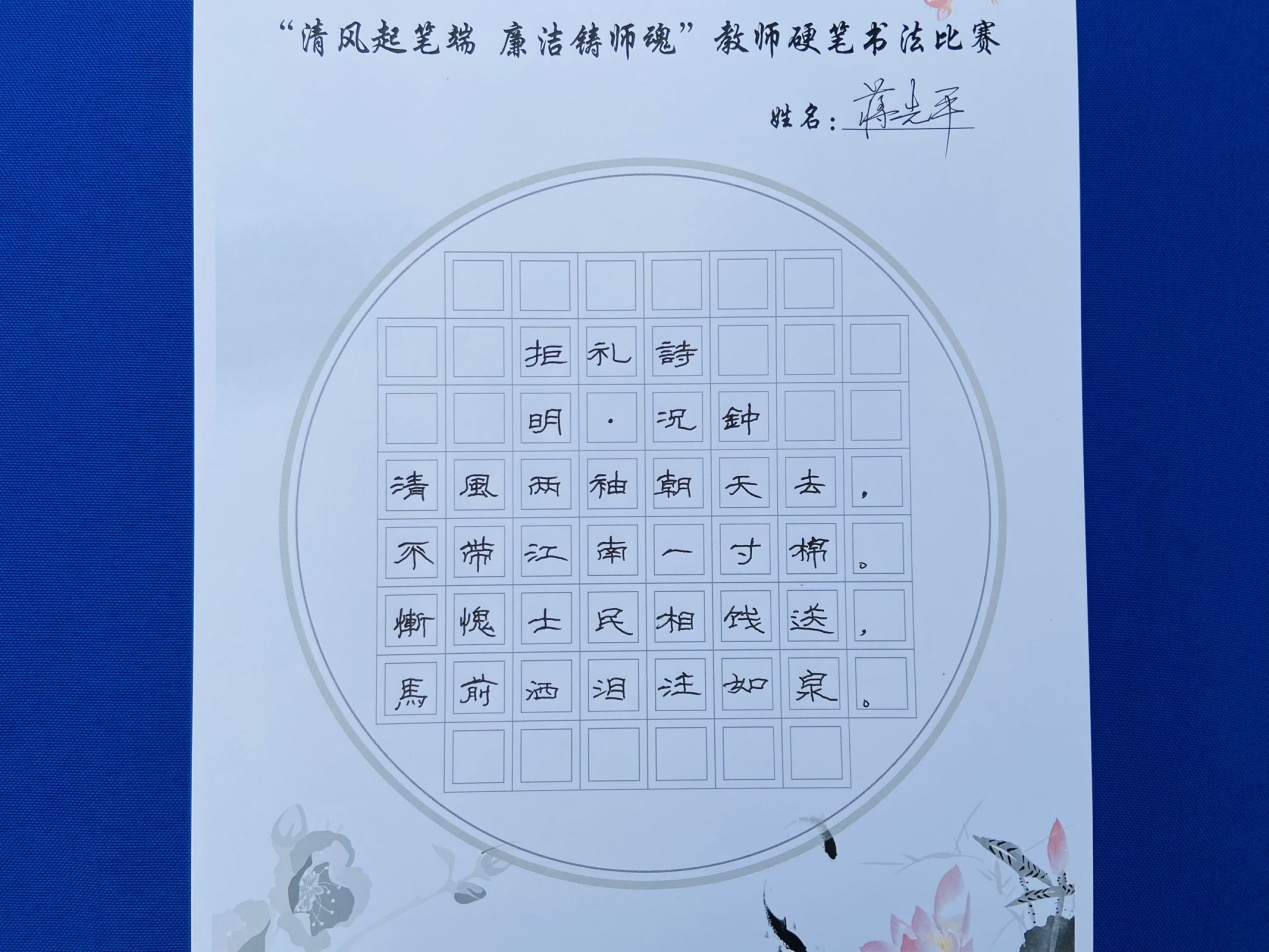 “清风起笔端 廉洁铸师魂”教师硬笔书法比赛
姓名：蒋光平
拒礼詩
明·况鈡
清風两袖朝天去，
不带江南一寸棉。
慚愧士民相饯送，
馬前洒泪注如泉。